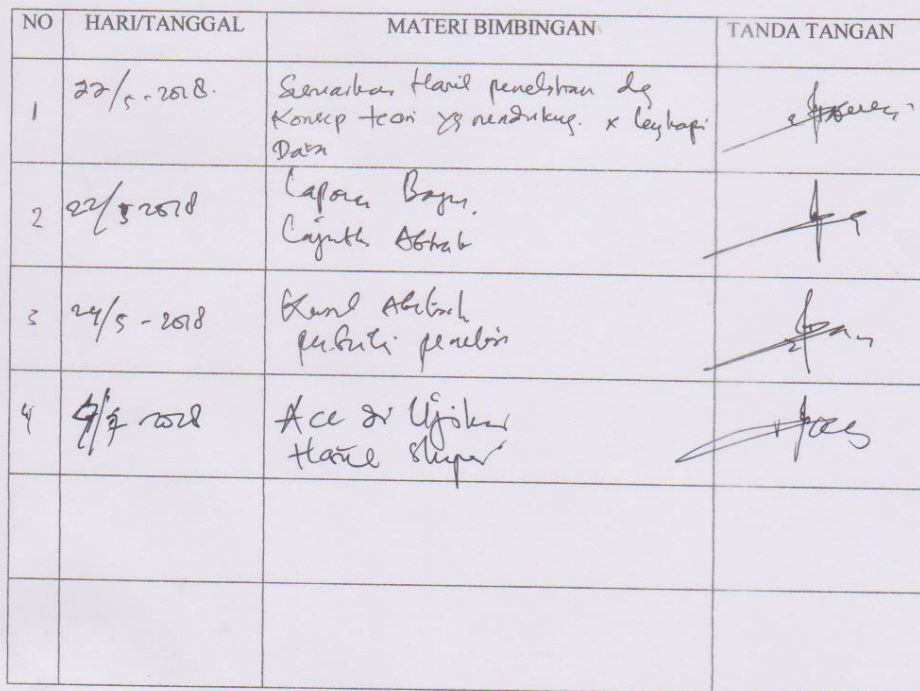 NO HARI/TANGGAL MATERI BIMBINGAN TANDA TANGAN
1 22/5 - 2018. Sesuaikan Hasil penelitian dg
Konsep teori yg mendukung. x lengkapi
Data
2 22/5 2018 Laporan Bagus.
Lanjutkan Abstrak
3 24/5 - 2018 Abstrak
perbaiki
4 2018 Acc di Ujikan
Hasil Skripsi